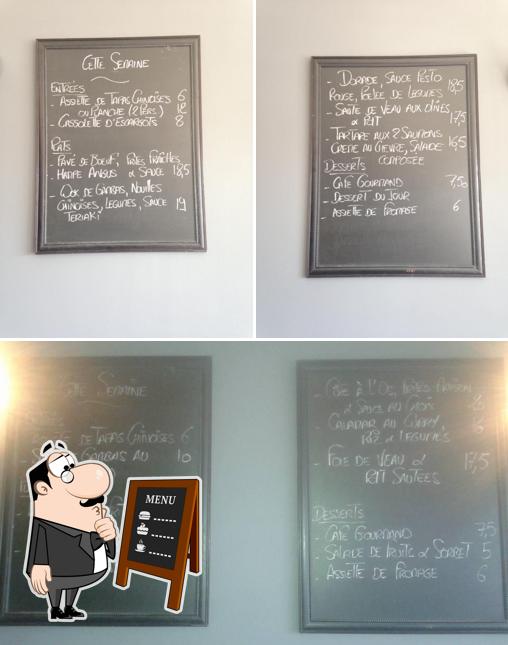 Cette Semaine
Entrées
- Assiette de Tapas Chinoises 6
ou Planche (2 Pers)
- Cassolette d'Escargots 8
Plats
- Pavé de Boeuf, Frites Fraîches
- Hampe Angus & Sauce 18,5
- Wok de Gambas, Nouilles
Chinoises, Legumes, Sauce 19
Teriaki
- Dorade, Sauce Pesto
Rouge, Poelée de Legumes 18,5
- Saute de Veau aux Olives
& Riz 17,5
- Tartare aux 2 Saumons
Creme au Chevre, Salade 16,5
Composée
Desserts
- Café Gourmand 7,50
- Dessert du Jour
- Assiette de Fromage 6
Cette Semaine
de Tapas Chinoises 6
Gambas au 10
MENU
- Côte à l'Os,
& Sauce au Choix
- Calamar au Curry,
Riz & Legumes
- Foie de Veau & 17,5
Riz Sautées
Desserts
- Café Gourmand 7,5
- Salade de Fruits & Sorbet 5
- Assiette de Fromage 6